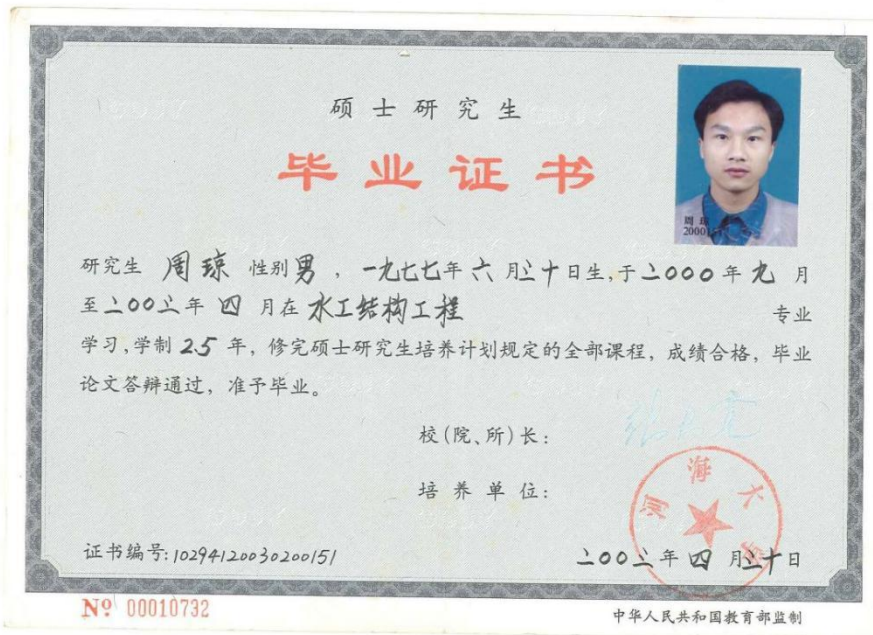 硕士研究生
毕业证书
周
20001
研究生 周琼 性别男，一九七七年六月三十日生,于二000年九月
至二00三年四月在水工结构工程 专业
学习,学制2.5年，修完硕士研究生培养计划规定的全部课程，成绩合格，毕业
论文答辩通过，准予毕业。
校(院、所)长:
培养单位:
河海大学
证书编号:10294120030200151
二00三年四月三十日
Nº 00010732
中华人民共和国教育部监制